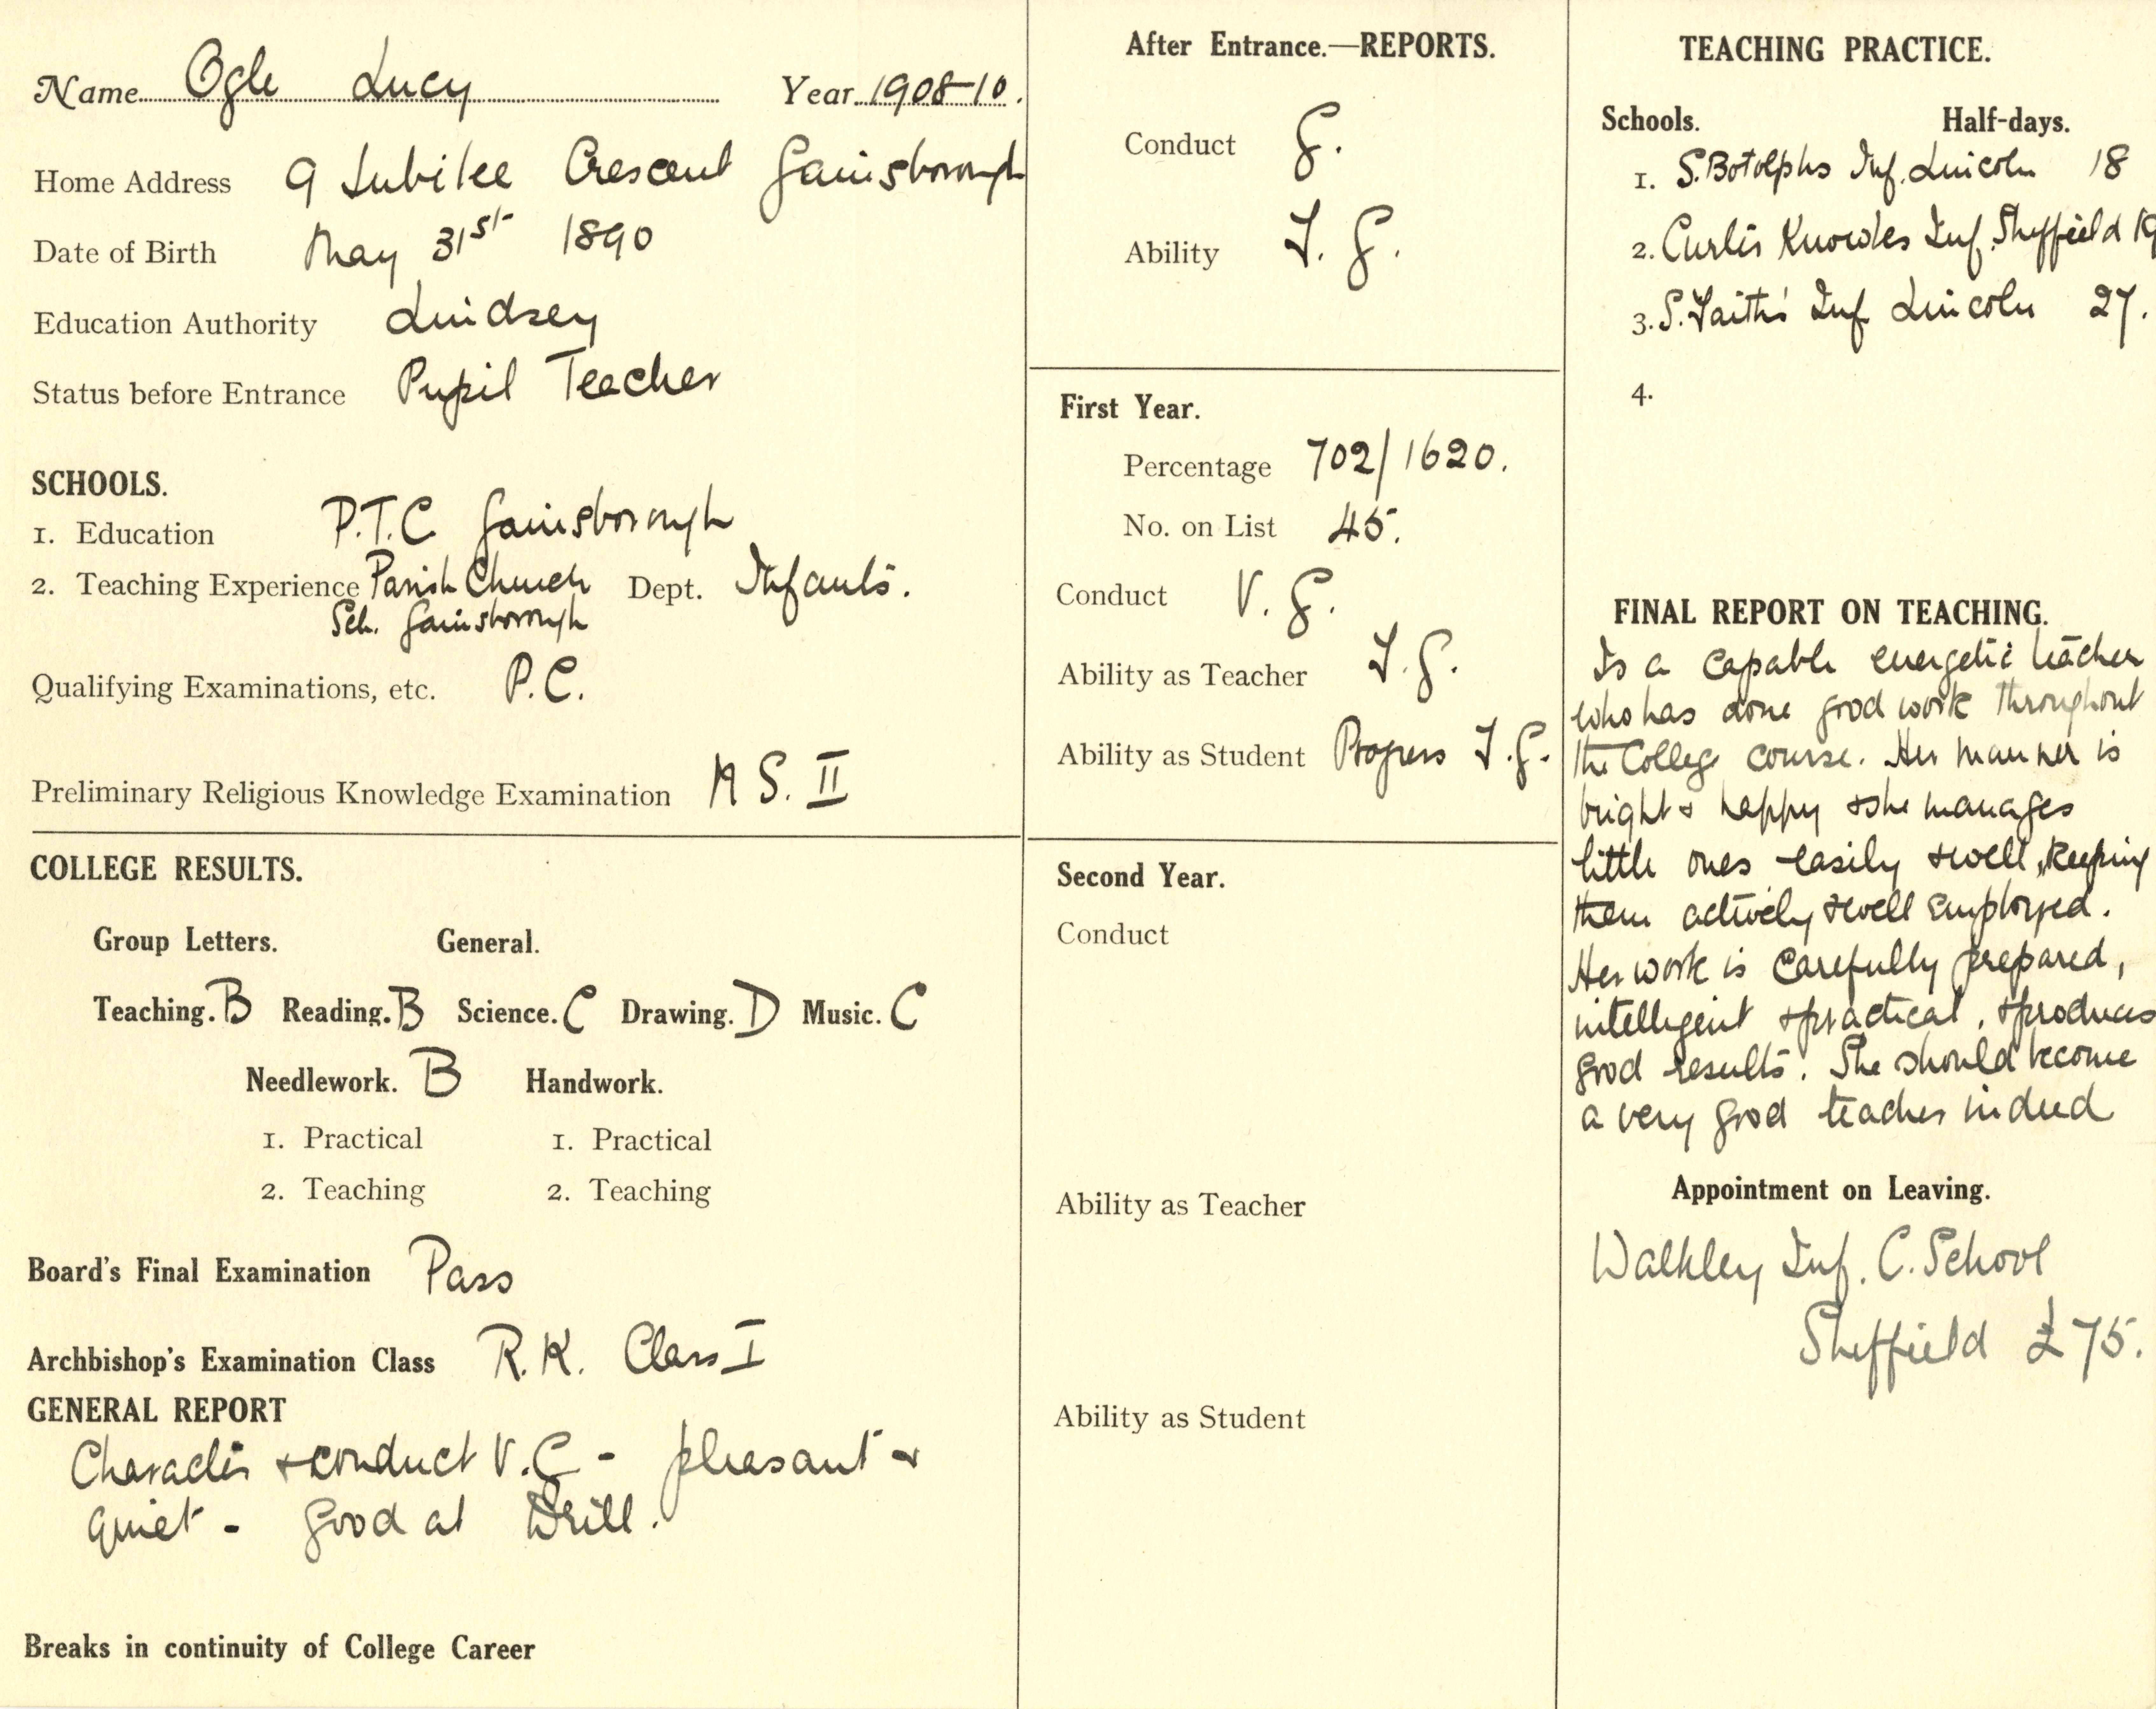 Name Ogle Lucy Year 1908-10.
Home Address 9 Jubilee Crescent Gainsborough
Date of Birth May 31st 1890
Education Authority Lindsey
Status before Entrance Pupil Teacher
SCHOOLS.
1. Education P.T.C Gainsborough
2. Teaching Experience Parish Church Dept. Infants.
Sch. Gainsborough
Qualifying Examinations, etc. P.C.
Preliminary Religious Knowledge Examination S. II
COLLEGE RESULTS.
Group Letters. General.
Teaching. B Reading. B Science. C Drawing. D Music. C
Needlework. B Handwork.
1. Practical 1. Practical
2. Teaching 2. Teaching
Board's Final Examination Pass
Archbishop's Examination Class R.K. Class I
GENERAL REPORT
Character & conduct V.G - pleasant &
quiet - good at Drill.
Breaks in continuity of College Career
After Entrance.—REPORTS.
Conduct G.
Ability F. G.
First Year.
Percentage 702/1620.
No. on List 45.
Conduct V. G.
Ability as Teacher F.G.
Ability as Student Progress F.G.
Second Year.
Conduct
Ability as Teacher
Ability as Student
TEACHING PRACTICE.
Schools. Half-days.
1. S. Botolphs Inf. Lincoln 18
2. Inf. Sheffield 19
3. S. Faith's Inf Lincoln 27.
4.
FINAL REPORT ON TEACHING.
Is a capable energetic teacher
who has done good work throughout
the College course. Her manner is
bright & happy & she manages
little ones easily & well, keeping
them actively & well employed.
Her work is carefully prepared,
intelligent & practical, & produces
good results. She should become
a very good teacher indeed
Appointment on Leaving.
Walkley Inf. C. School
Sheffield £75.